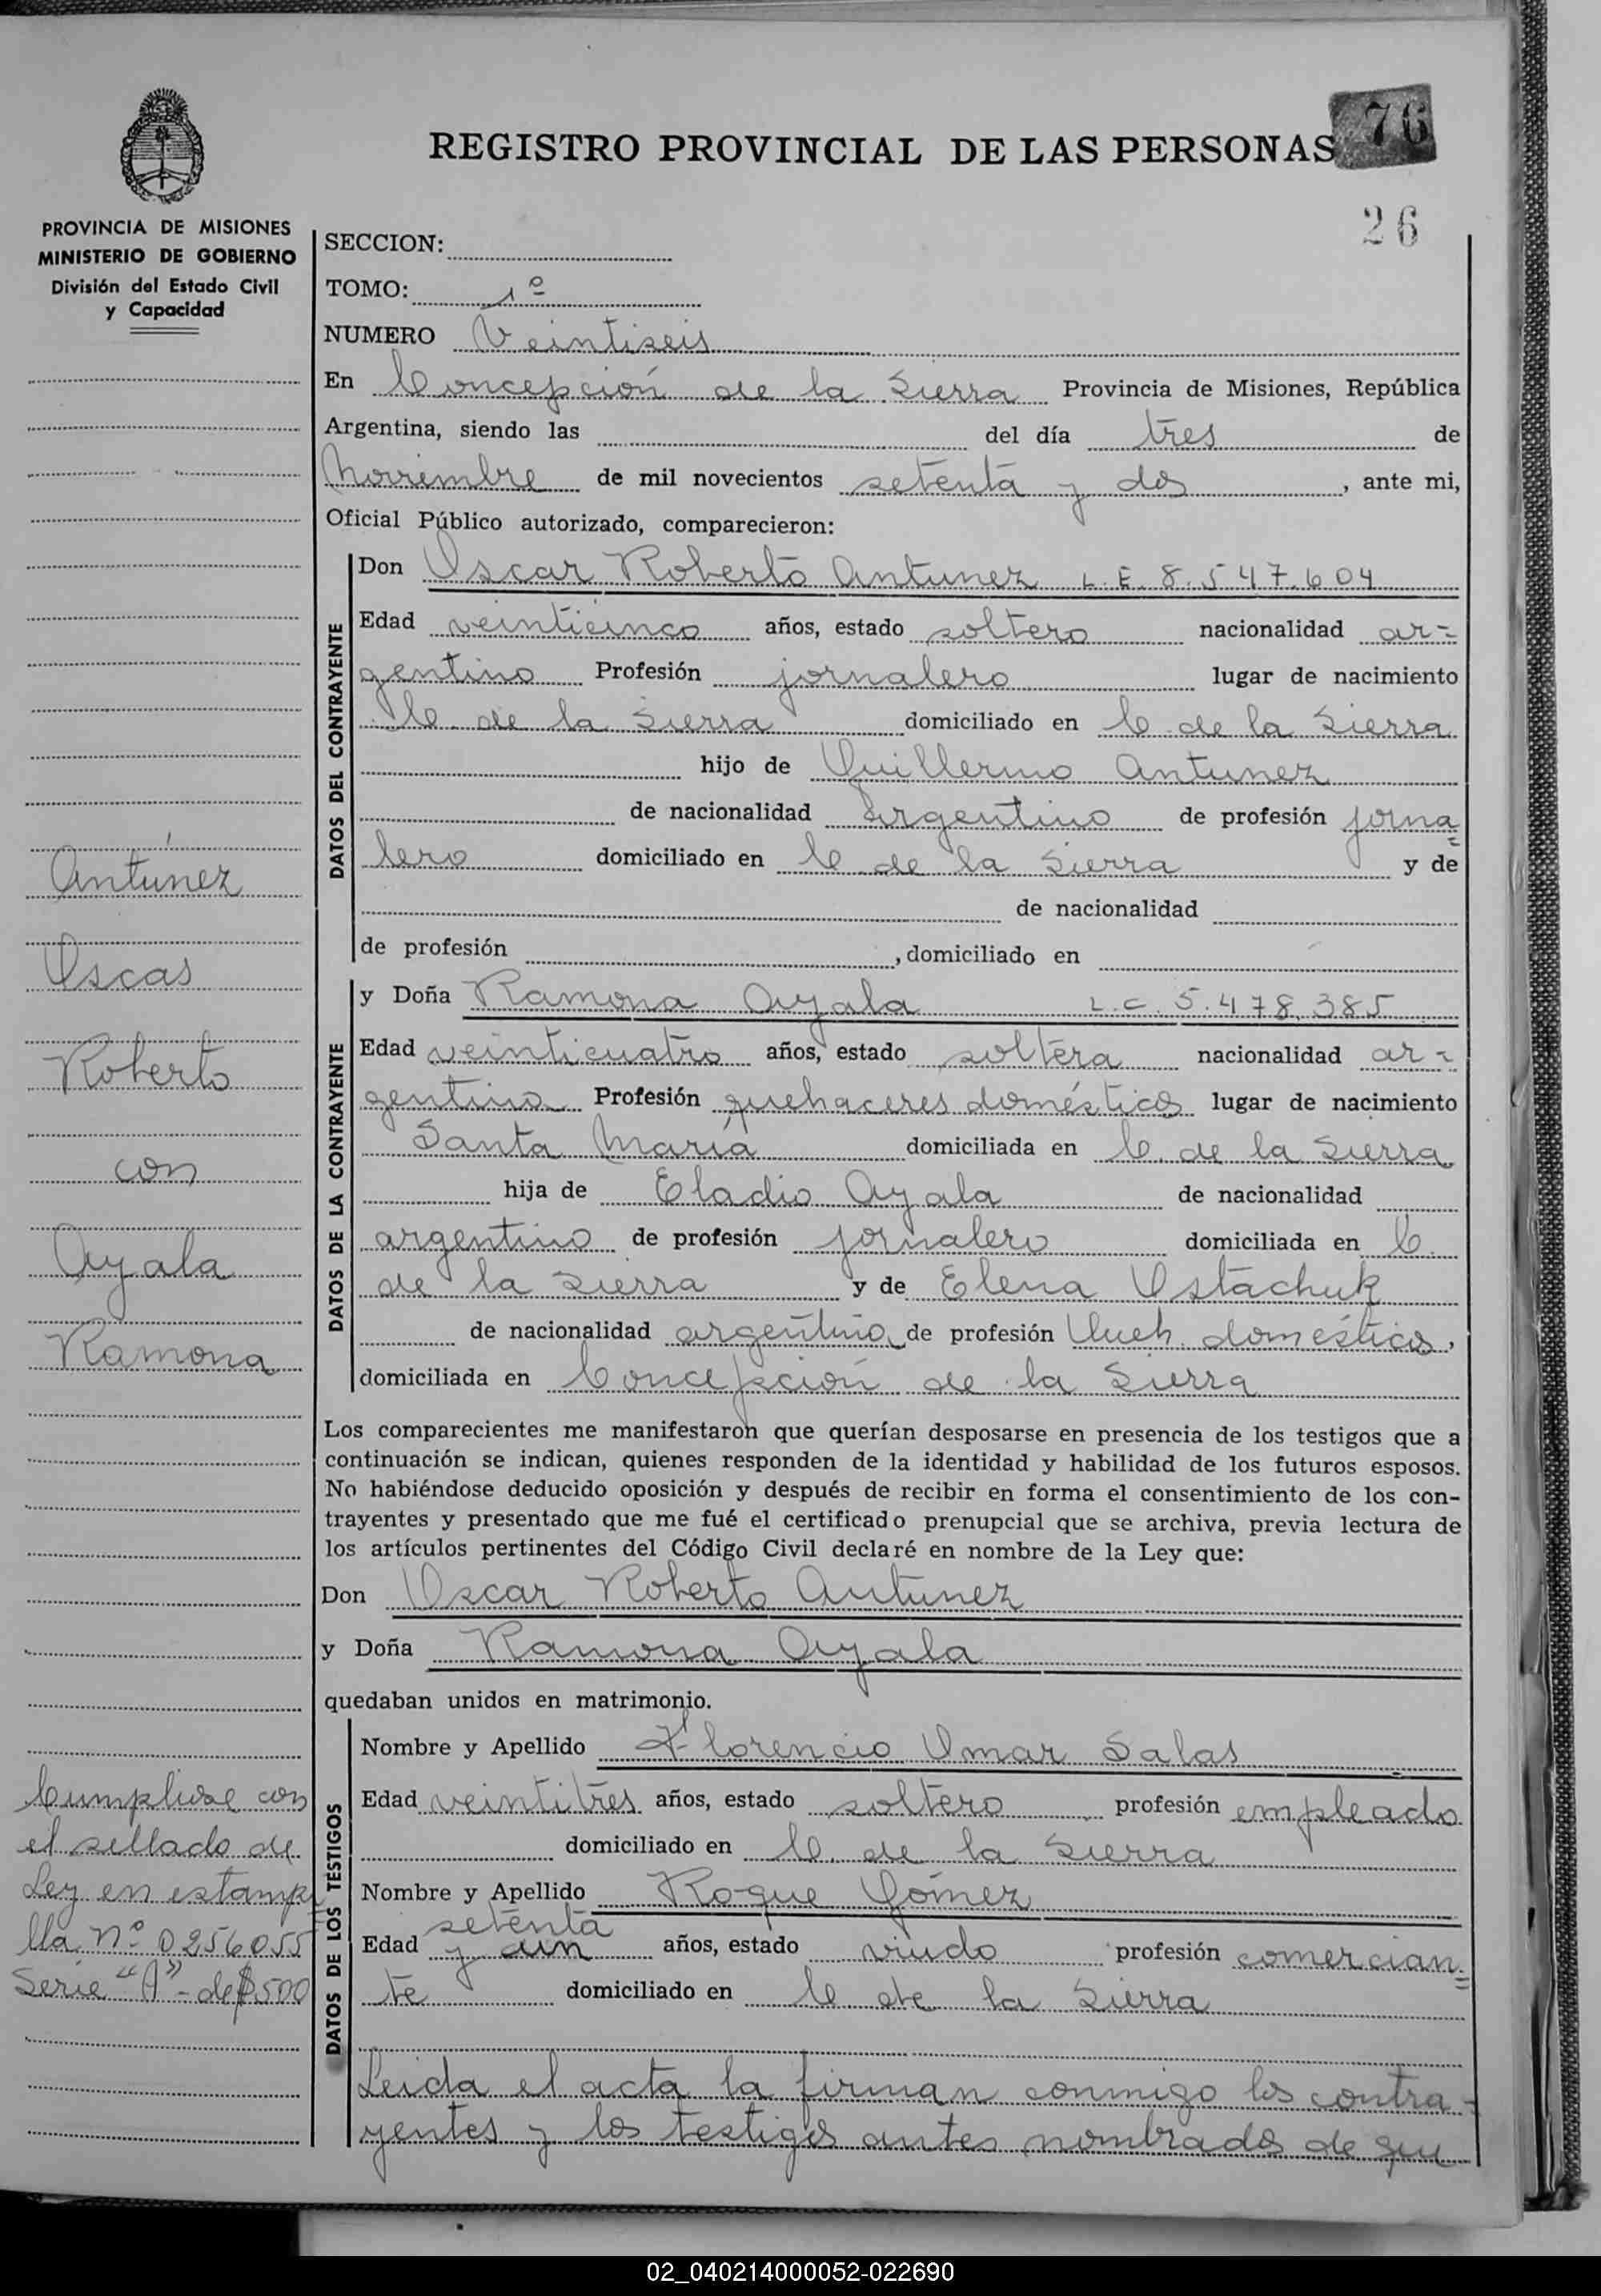 REGISTRO PROVINCIAL DE LAS PERSONAS
76
26
PROVINCIA DE MISIONES
MINISTERIO DE GOBIERNO
División del Estado Civil
y Capacidad
SECCION:
TOMO: 1º
NUMERO Veintiseis
En Concepción de la Sierra Provincia de Misiones, República
Argentina, siendo las del día tres de
Noviembre de mil novecientos setenta y dos, ante mi,
Oficial Público autorizado, comparecieron:
DATOS DEL CONTRAYENTE
Don Oscar Roberto Antunez L.E. 8.547.604
Edad veinticinco años, estado soltero nacionalidad ar-
gentino Profesión jornalero lugar de nacimiento
C. de la Sierra domiciliado en C. de la Sierra
hijo de Guillermo Antunez
de nacionalidad Argentino de profesión jorna=
lero domiciliado en C. de la Sierra y de
de nacionalidad
de profesión , domiciliado en
DATOS DE LA CONTRAYENTE
y Doña Ramona Ayala L.C. 5.478.385
Edad veinticuatro años, estado soltera nacionalidad ar-
gentina Profesión quehaceres domésticos lugar de nacimiento
Santa María domiciliada en C. de la Sierra
hija de Eladio Ayala de nacionalidad
argentino de profesión jornalero domiciliada en C.
de la Sierra y de Elena Ostachuk
de nacionalidad argentina de profesión Queh. domésticos,
domiciliada en Concepción de la Sierra
Los comparecientes me manifestaron que querían desposarse en presencia de los testigos que a
continuación se indican, quienes responden de la identidad y habilidad de los futuros esposos.
No habiéndose deducido oposición y después de recibir en forma el consentimiento de los con-
trayentes y presentado que me fué el certificado prenupcial que se archiva, previa lectura de
los artículos pertinentes del Código Civil declaré en nombre de la Ley que:
Don Oscar Roberto Antunez
y Doña Ramona Ayala
quedaban unidos en matrimonio.
DATOS DE LOS TESTIGOS
Nombre y Apellido Florencio Omar Salas
Edad veintitrés años, estado soltero profesión empleado
domiciliado en C. de la Sierra
Nombre y Apellido Roque Gómez
setenta
Edad y un años, estado viudo profesión comercian=
te domiciliado en C. de la Sierra
Leida el acta la firman conmigo los contra-
yentes y los testigos antes nombrados de que
Antúnez
Oscar
Roberto
con
Ayala
Ramona
Cumplióse con
el sellado de
Ley en estampi
lla Nº 0256055
Serie "A" - de $500
02_040214000052-022690